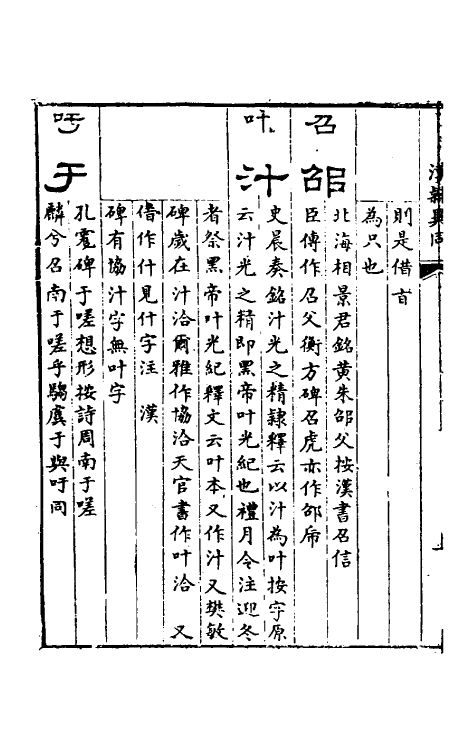 漢隸異同
則是借旨
為只也
召
邵
北海相景君銘黄朱邵父按漢書召信
臣傳作召父衡方碑召虎亦作邵虎
叶
汁
史晨奏銘汁光之精隷釋云以汁為叶按字原
云汁光之精即黑帝叶光紀也禮月令注迎冬
者祭黑帝叶光紀釋文云叶本又作汁又樊敏
碑歲在汁洽爾雅作協洽天官書作叶洽 又
借作什見什字注 漢
碑有協汁字無叶字
吁
于
孔宙碑于嗟想形按詩周南于嗟
麟兮召南于嗟乎騶虞于與吁同